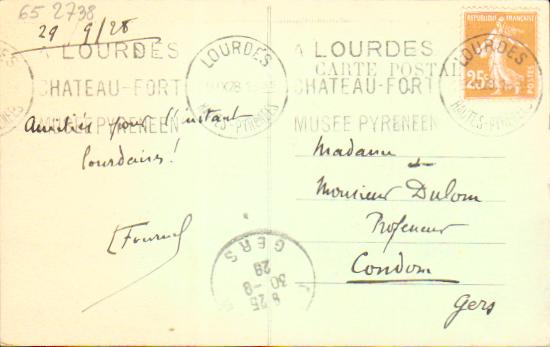 65 2738
29/9/28
A LOURDES
CHATEAU-FORT
MUSEE PYRENEEN
LOURDES
HAUTES-PYRENEES
A LOURDES
CHATEAU-FORT
MUSEE PYRENEEN
CARTE POSTALE
REPUBLIQUE FRANÇAISE
25c
POSTES
LOURDES
HAUTES-PYRENEES
Amitiés pour l'instant
lourdaises!
Madame
Monsieur Dulom
Professeur
Condom
Gers
8 25
30-9
28
GERS